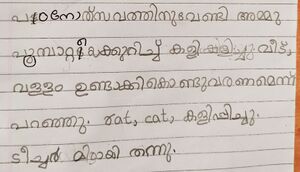 പഠനോത്സവത്തിനുവേണ്ടി അമ്മു
പൂമ്പാറ്റയെക്കുറിച്ച് കളികളിച്ചു വീട്,
വള്ളം ഉണ്ടാക്കികൊണ്ടുവരണമെന്ന്
പറഞ്ഞു. rat, cat, കളിപ്പിച്ചു.
ടീച്ചർ മിഠായി തന്നു.